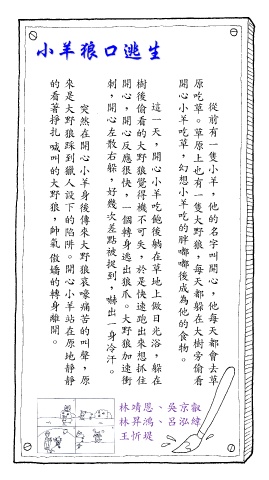 小羊狼口逃生
從前有一隻小羊，他的名字叫開心，他每天都會去草
原吃草。草原上也有一隻大野狼，每天都躲在大樹旁偷看
開心小羊吃草，幻想小羊吃的胖嘟嘟後成為他的食物。
這一天，開心小羊吃飽後躺在草地上做日光浴，躲在
樹後偷看的大野狼覺得機不可失，於是快速跑出來想抓住
開心，開心反應很快，一個轉身逃出狼爪。大野狼加速衝
刺，開心左散右躲，好幾次差點被捉到，嚇出一身冷汗。
突然在開心小羊身後傳來大野狼哀嚎痛苦的叫聲，原
來是大野狼踩到獵人設下的陷阱。開心小羊站在原地靜靜
的看著掙扎喊叫的大野狼，帥氣傲嬌的轉身離開。
林靖恩、吳京叡
林昇鴻、呂泓緯
王忻堤